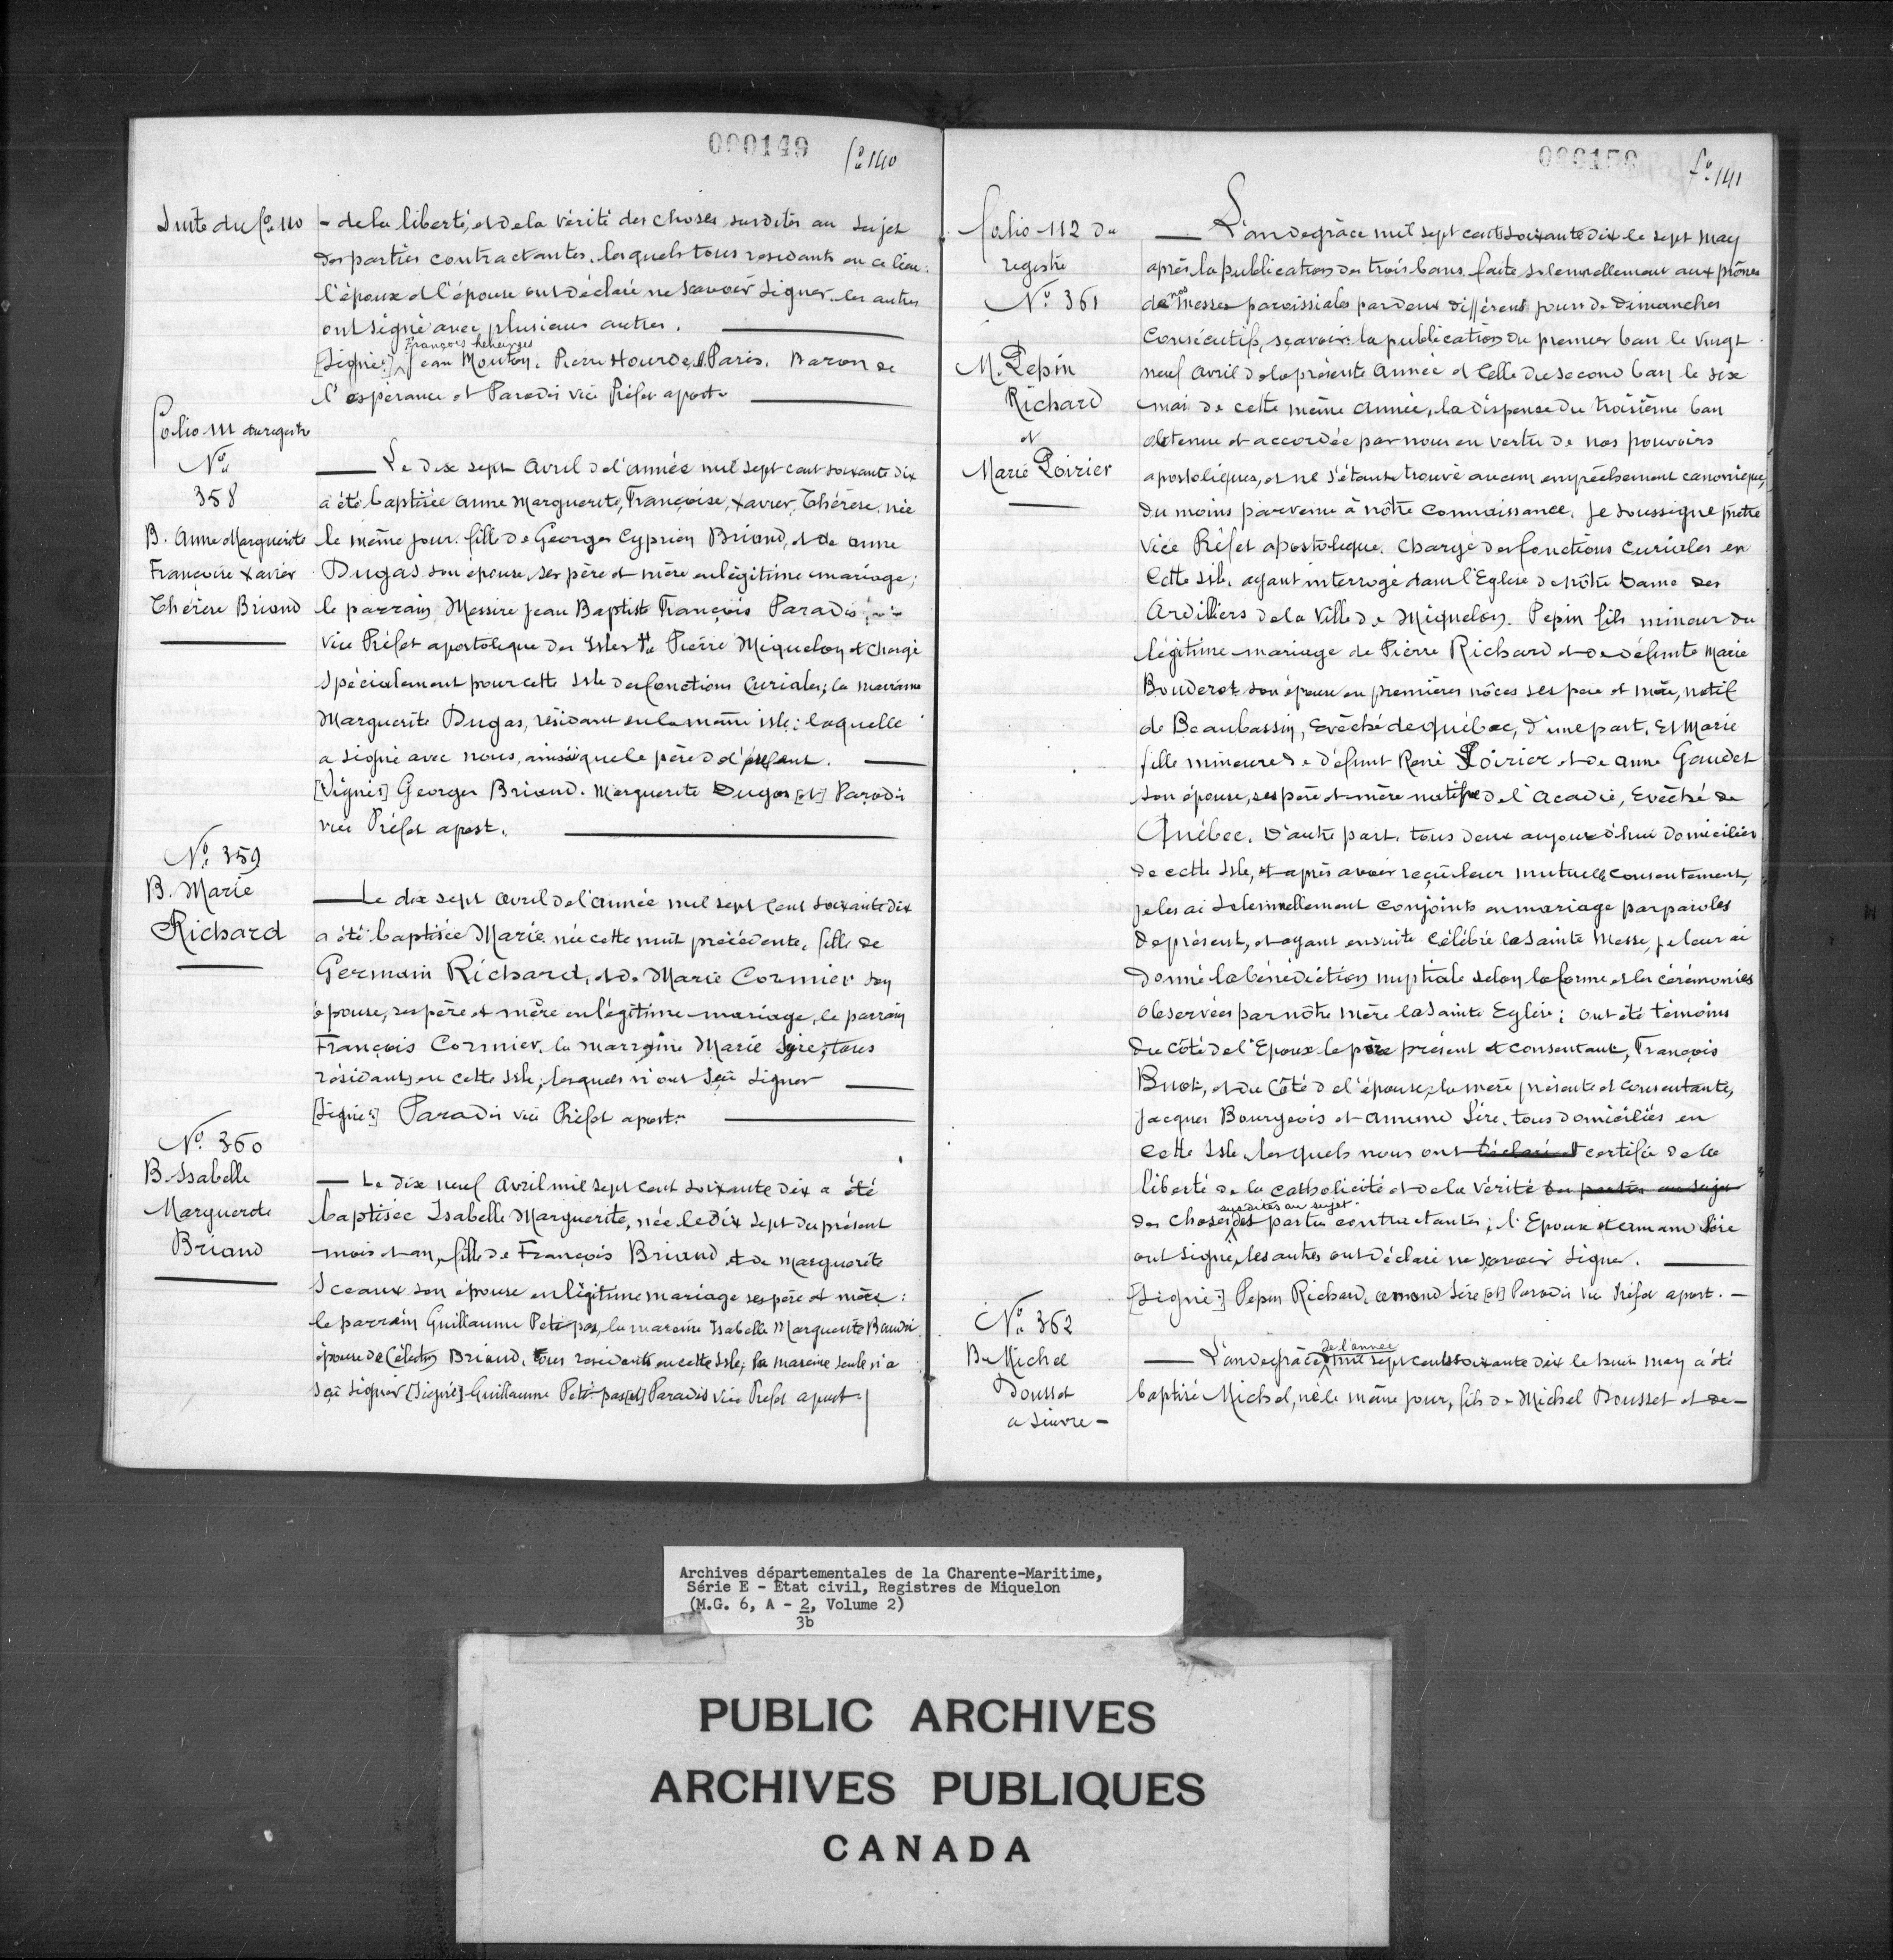 000149 fo. 140
Suite du fo. 110
- de la liberté, et de la vérité des choses susdites au sujet
des parties contractantes. lesquels tous residants en ce lieu:
l'époux et l'épouse ont déclaré ne sçavoir signer. les autres
ont signé avec plusieurs autres.
François
[Signé:] Jean Mouton. Pierre Hourde. Paris. Baron de
l'espérance et Paradis vice Préfet apost.
Folio 111 du registre
No.
358
B. Anne Marguerite
Françoise Xavier
Thérèse Briand
Le dix sept Avril de l'année mil sept cent soixante dix
a été baptisée Anne Marguerite, Françoise, Xavier, Thérèse, née
le même jour. fille de Georges Cyprien Briand, et de Anne
Dugas son épouse, ses père et mère en légitime mariage;
le parrain Messire Jean Baptiste François Paradis
vice Préfet apostolique des Isles St. Pierre Miquelon et chargé
spécialement pour cette Isle des fonctions Curiales; la marraine
Marguerite Dugas, résidant en la même isle; laquelle
a signé avec nous, ainsi que le père de l'enfant.
[Signés] Georges Briand. Marguerite Dugas [et] Paradis
vice Préfet apost.
No. 359
B. Marie
Richard
Le dix sept avril de l'année mil sept cent soixante dix
a été baptisée Marie née cette nuit précédente, fille de
Germain Richard, et de Marie Cormier son
épouse, ses père et mère en légitime mariage, le parrain
François Cormier, la marraine Marie Sire, tous
résidants en cette Isle; lesquels n'ont sçû signer
[Signé:] Paradis vice Préfet apost.
No. 360
B. Isabelle
Marguerite
Briand
Le dix neuf Avril mil sept cent soixante dix a été
baptisée Isabelle Marguerite, née le dix sept du présent
mois et an, fille de François Briand et de Marguerite
Sceaux son épouse en légitime mariage ses père et mère:
le parrain Guillaume Petitpas, la maraine Isabelle Marguerite Baudri
épouse de Célestin Briand. tous residants en cette Isle; la maraine seule n'a
sçû signer [Signé] Guillaume Petit-pas [et] Paradis vice Préfet apost.
000150 fo. 141
folio 112 du
registre
No. 361
M. Pepin
Richard
et
Marie Poirier
L'an de grâce mil sept cent soixante dix le sept may
après la publication des trois bans faite solennellement aux prônes
de nos Messes paroissiales par deux différents jours de Dimanches
Consécutifs, sçavoir: la publication du premier ban le vingt
neuf avril de la présente Année et Celle du second ban le six
mai de cette même année, la dispense du troisième ban
obtenue et accordée par nous en vertu de nos pouvoirs
apostoliques, et ne s'étant trouvé aucun empêchement canonique,
du moins parvenu à nôtre connaissance. Je soussigné prêtre
vice Préfet apostolique. Chargé des fonctions Curiales en
Cette isle, ayant interrogé dans l'Eglise de nôtre Dame des
Ardilliers de la Ville de Miquelon. Pepin fils mineur du
légitime mariage de Pierre Richard et de défunte Marie
Bouderot son épouse en premières nôces ses père et mère, natif
de Beaubassin, Evêché de Québec, d'une part. Et Marie
fille mineure de défunt René Poirier et de Anne Gaudet
son épouse, ses père et mère native de l'Acadie, Evêché de
Québec. D'autre part. tous deux aujourd'hui domiciliés
de cette Isle, et après avoir reçû leur mutuelle consentement,
je les ai solennellement conjoints en mariage par paroles
de présent, et ayant ensuite célébré la Sainte Messe, je leur ai
donné la bénédiction nuptiale selon la forme et les cérémonies
observées par nôtre mère la Sainte Eglise; ont été témoins
du côté de l'Epoux le père présent et consentant, François
Buot, et du Côté de l'épouse, la mère présente et consentante,
Jacques Bourgeois et Amand Sire. tous domiciliés en
cette Isle, lesquels nous ont déclaré et certifié de la
liberté de la catholicité et de la vérité des parties au sujet
susdites au sujet
des choses des parties contractantes; l'Epoux et Armand Sire
ont signé, les autres ont déclaré ne sçavoir signer.
[Signé:] Pepin Richard, Amand Sire [et] Paradis vice Préfet apost.
No. 362
B. Michel
Dousset
a suivre -
de l'année
L'an de grâce mil sept cent soixante dix le huit may a été
baptisé Michel, né le même jour, fils de Michel Dousset et de -
Archives départementales de la Charente-Maritime,
Série E - Etat civil, Registres de Miquelon
(M.G. 6, A - 2, Volume 2)
3b
PUBLIC ARCHIVES
ARCHIVES PUBLIQUES
CANADA